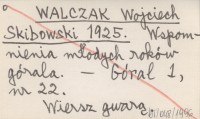 WALCZAK Wojciech
Skibowski 1925. Wspom-
nienia młodych roków
górala. — Góral 1,
nr 22.
Wiersz gwarą.